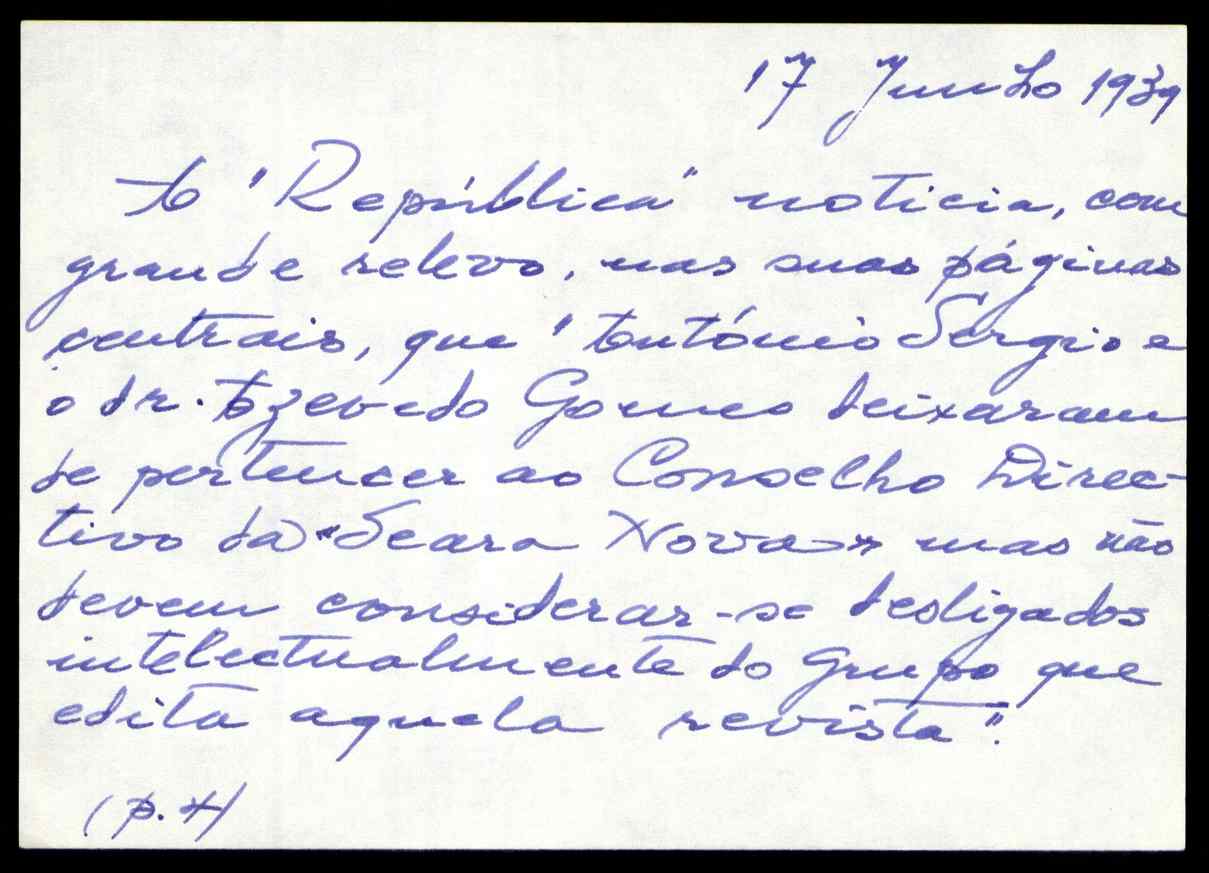 17 Junho 1939
A "República" noticia, com
grande relevo, nas suas páginas
centrais, que "António Sergio e
o dr. Azevedo Gomes deixaram
de pertencer ao Conselho Direc-
tivo da «Seara Nova» mas não
devem considerar-se desligados
intelectualmente do Grupo que
edita aquela revista".
(p. 4)